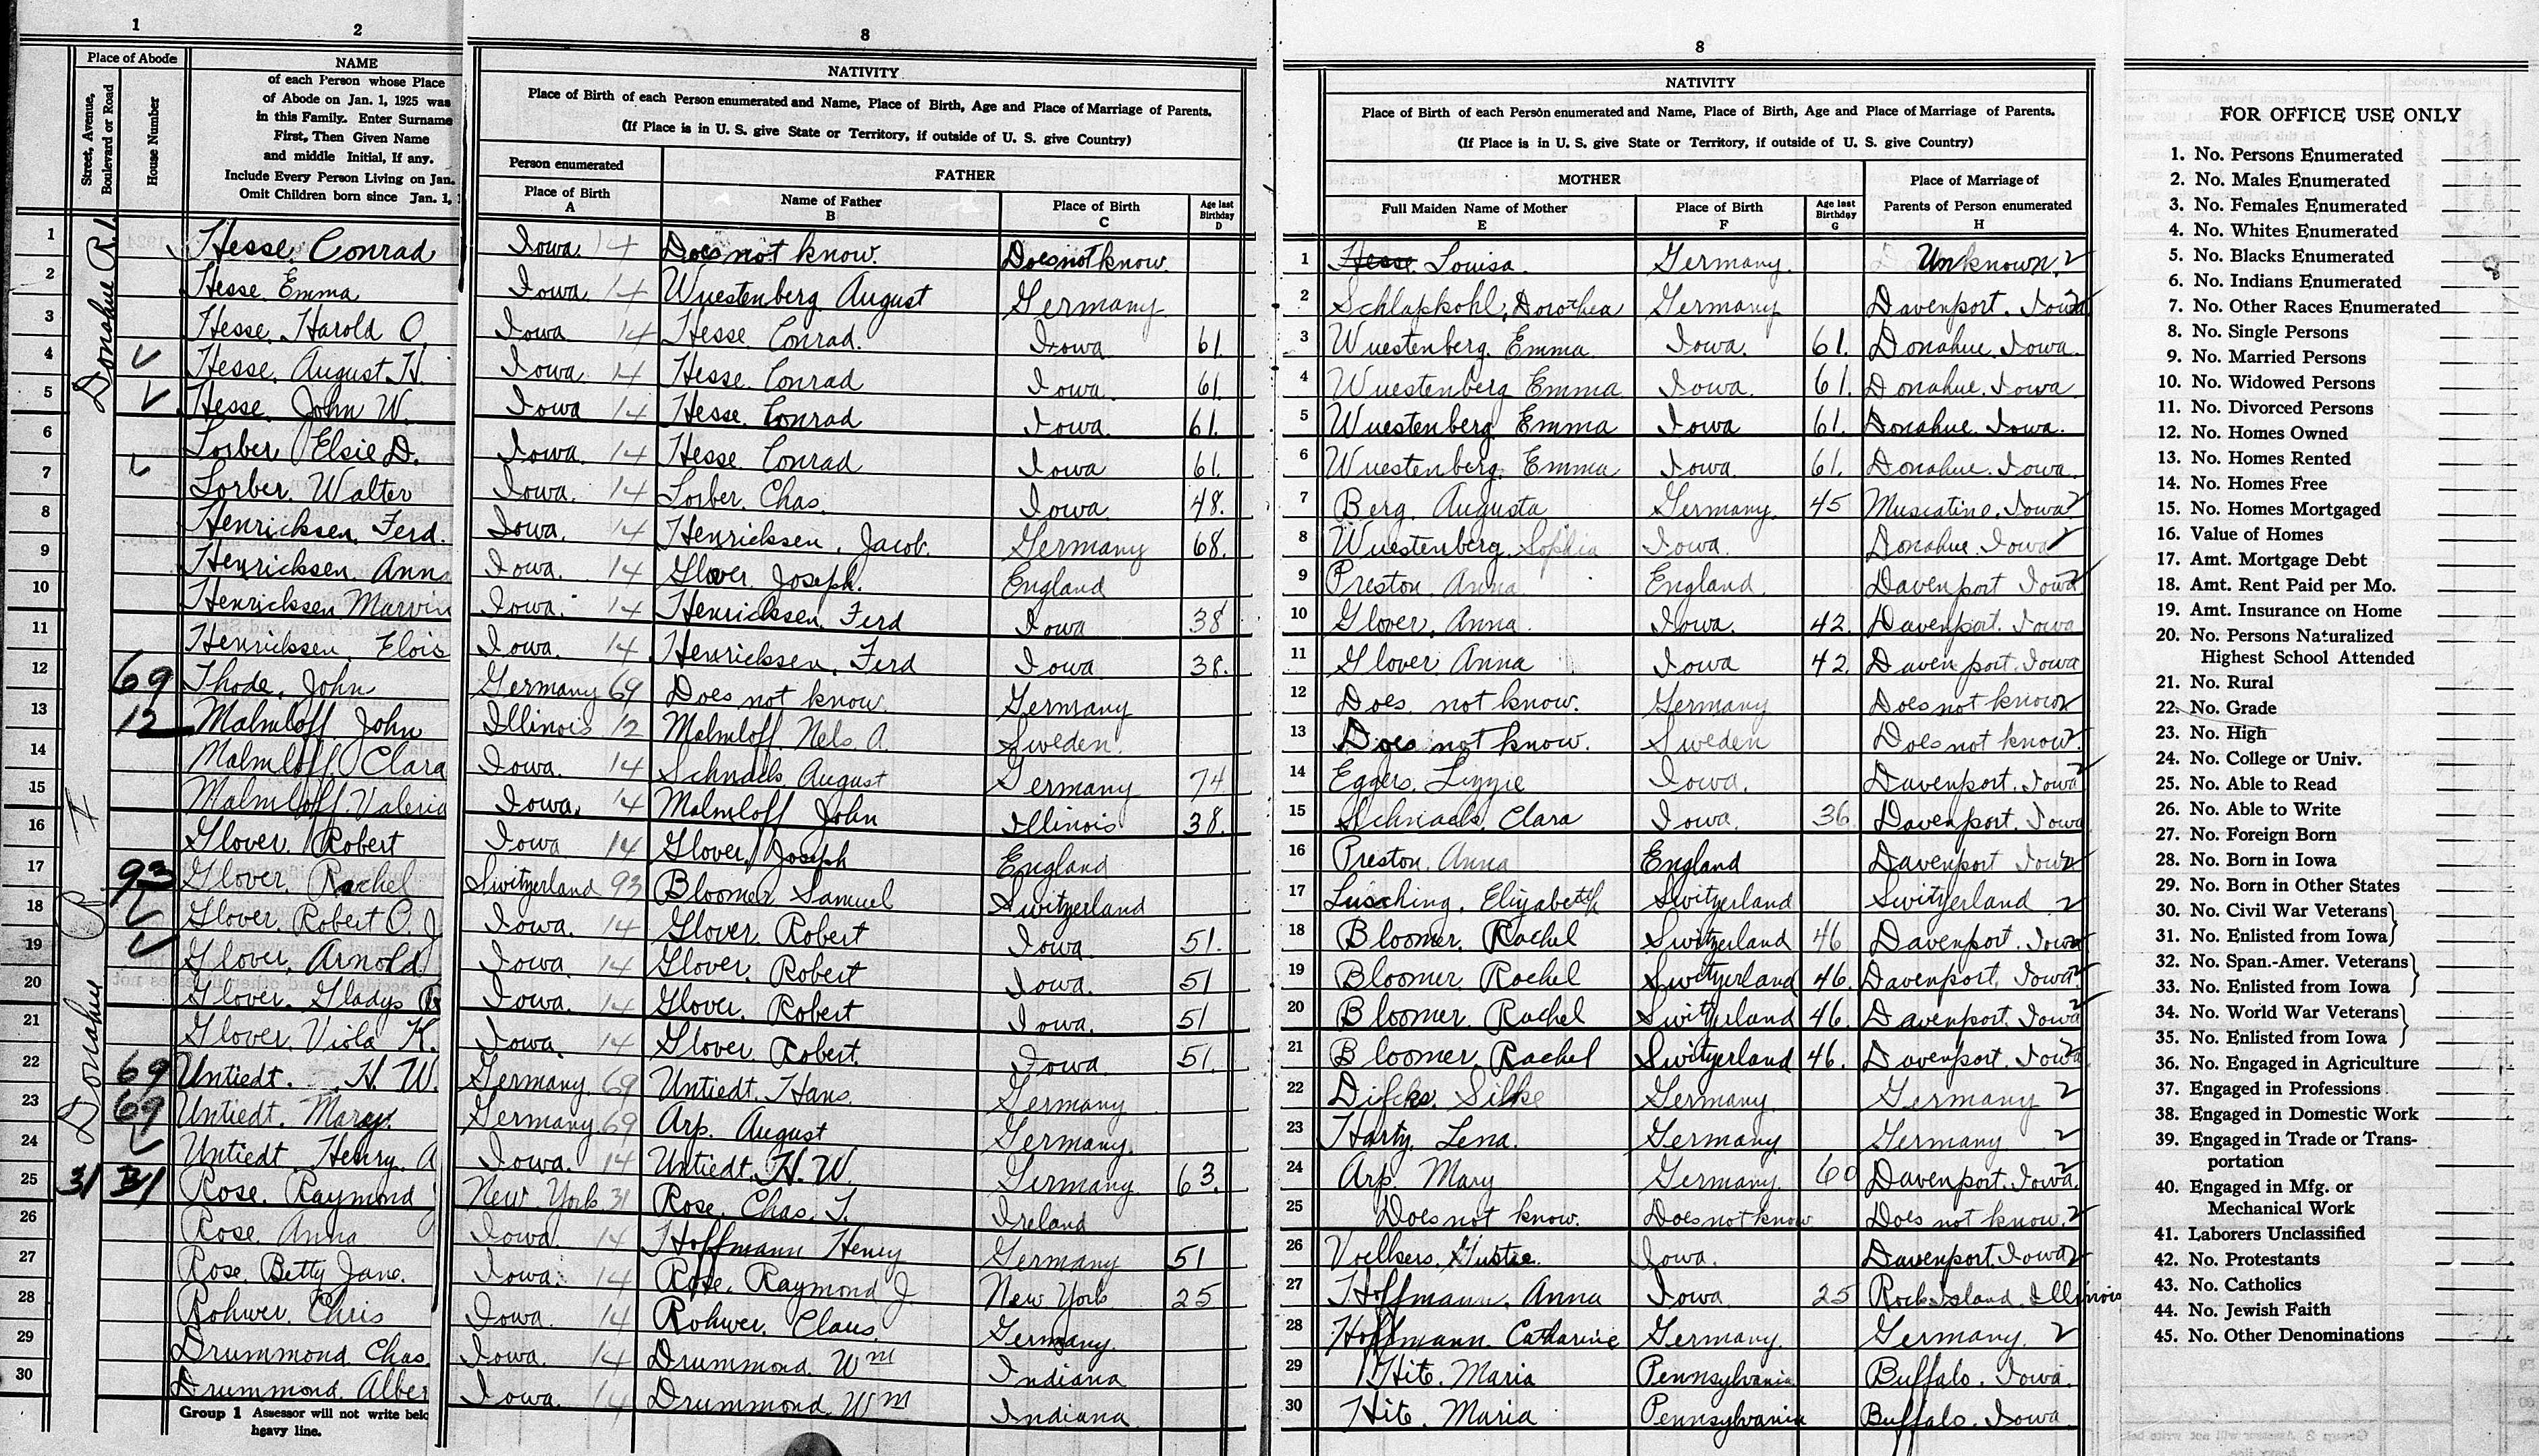 1 2 8 8
Place of Abode
Street, Avenue, Boulevard or Road
House Number
NAME
of each Person whose Place
of Abode on Jan. 1, 1925 was
in this Family. Enter Surname
First, Then Given Name
and middle Initial, If any.
Include Every Person Living on Jan.
Omit Children born since Jan. 1, 1
NATIVITY
Place of Birth of each Person enumerated and Name, Place of Birth, Age and Place of Marriage of Parents.
(If Place is in U. S. give State or Territory, if outside of U. S. give Country)
Person enumerated
FATHER
Place of Birth A
Name of Father B
Place of Birth C
Age last Birthday D
NATIVITY
Place of Birth of each Person enumerated and Name, Place of Birth, Age and Place of Marriage of Parents.
(If Place is in U. S. give State or Territory, if outside of U. S. give Country)
MOTHER
Place of Marriage of
Parents of Person enumerated
H
Full Maiden Name of Mother E
Place of Birth F
Age last Birthday G
Donahue R1.
Donahue R I
1 Hesse. Conrad Iowa. 14 Does not know. Does not know. 1 Hesse. Louisa. Germany. Unknown. 2
2 Hesse. Emma Iowa 14 Wuestenberg August Germany 2 Schlapkohl, Dorothea Germany Davenport. Iowa 2
3 Hesse. Harold O. Iowa 14 Hesse Conrad. Iowa 61. 3 Wuestenberg. Emma Iowa. 61. Donahue. Iowa.
4 Hesse. August H. Iowa. 14 Hesse. Conrad Iowa. 61. 4 Wuestenberg Emma Iowa. 61. Donahue. Iowa
5 Hesse. John W. Iowa 14 Hesse. Conrad Iowa. 61. 5 Wuestenberg Emma Iowa 61. Donahue. Iowa.
6 Lorber Elsie D. Iowa. 14 Hesse. Conrad Iowa 61. 6 Wuestenberg. Emma Iowa. 61. Donahue. Iowa.
7 Lorber. Walter Iowa. 14 Lorber. Chas. Iowa. 48. 7 Berg. Augusta Germany. 45 Muscatine. Iowa 2
8 Henricksen. Ferd. Iowa. 14 Henricksen. Jacob. Germany 68. 8 Wuestenberg. Sophia Iowa. Donahue. Iowa 2
9 Henricksen. Ann Iowa. 14 Glover Joseph. England 9 Preston. Anna England. Davenport Iowa 2
10 Henricksen Marvin Iowa. 14 Henricksen. Ferd Iowa 38 10 Glover. Anna. Iowa. 42. Davenport. Iowa
11 Henricksen. Elois Iowa. 14 Henricksen. Ferd Iowa 38. 11 Glover Anna Iowa 42. Davenport. Iowa
12 69 Thode. John Germany 69 Does not know. Germany 12 Does not know. Germany Does not know 2
13 12 Malmloff. John Illinois 12 Malmloff. Nels A. Sweden. 13 Does not know. Sweden Does not know 2
14 Malmloff Clara Iowa. 14 Schnack. August Germany 74 14 Eggers. Lizzie Iowa. Davenport. Iowa 2
15 Malmloff. Valeria Iowa. 14 Malmloff John Illinois 38. 15 Schnack. Clara Iowa. 36 Davenport. Iowa
16 Glover. Robert Iowa 14 Glover. Joseph England 16 Preston. Anna England Davenport Iowa 2
17 93 Glover. Rachel Switzerland 93 Bloomer. Samuel Switzerland 17 Elizabeth Switzerland Switzerland 2
18 Glover. Robert O. J Iowa. 14 Glover. Robert Iowa. 51. 18 Bloomer. Rachel Switzerland 46 Davenport. Iowa
19 Glover. Arnold Iowa. 14 Glover. Robert Iowa. 51 19 Bloomer. Rachel Switzerland 46. Davenport. Iowa 2
20 Glover. Gladys Iowa. 14 Glover. Robert Iowa. 51 20 Bloomer. Rachel Switzerland 46. Davenport. Iowa 2
21 Glover. Viola K. Iowa. 14 Glover. Robert. Iowa. 51. 21 Bloomer. Rachel Switzerland 46. Davenport. Iowa
22 69 Untiedt. H. W. Germany. 69 Untiedt. Hans. Germany 22 Silke Germany. Germany 2
23 69 Untiedt. Mary. Germany 69 Arp. August Germany. 23 Harty. Lena. Germany Germany 2
24 Untiedt. Henry. A Iowa. 14 Untiedt. H. W. Germany. 63. 24 Arp. Mary Germany. 60 Davenport. Iowa. 2
25 31 31 Rose. Raymond J New York 31 Rose. Chas. T. Ireland 25 Does not know. Does not know Does not know. 2
26 Rose. Anna Iowa. 14 Hoffmann Henry Germany 51 26 Voelkers. Gustie. Iowa. Davenport. Iowa 2
27 Rose. Betty Jane. Iowa. 14 Rose. Raymond J. New York 25 27 Hoffmann. Anna Iowa. 25 Rock Island. Illinois
28 Rohwer. Chris Iowa. 14 Rohwer. Claus. Germany. 28 Hoffmann. Catharine Germany. Germany. 2
29 Drummond. Chas. Iowa. 14 Drummond. Wm Indiana 29 Hite. Maria Pennsylvania Buffalo. Iowa.
30 Drummond. Alber Iowa. 14 Drummond. Wm Indiana. 30 Hite. Maria Pennsylvania Buffalo. Iowa.
Group 1 Assessor will not write belo
heavy line.
FOR OFFICE USE ONLY
1. No. Persons Enumerated
2. No. Males Enumerated
3. No. Females Enumerated
4. No. Whites Enumerated
5. No. Blacks Enumerated
6. No. Indians Enumerated
7. No. Other Races Enumerated
8. No. Single Persons
9. No. Married Persons
10. No. Widowed Persons
11. No. Divorced Persons
12. No. Homes Owned
13. No. Homes Rented
14. No. Homes Free
15. No. Homes Mortgaged
16. Value of Homes
17. Amt. Mortgage Debt
18. Amt. Rent Paid per Mo.
19. Amt. Insurance on Home
20. No. Persons Naturalized
Highest School Attended
21. No. Rural
22. No. Grade
23. No. High
24. No. College or Univ.
25. No. Able to Read
26. No. Able to Write
27. No. Foreign Born
28. No. Born in Iowa
29. No. Born in Other States
30. No. Civil War Veterans
31. No. Enlisted from Iowa
32. No. Span.-Amer. Veterans
33. No. Enlisted from Iowa
34. No. World War Veterans
35. No. Enlisted from Iowa
36. No. Engaged in Agriculture
37. Engaged in Professions
38. Engaged in Domestic Work
39. Engaged in Trade or Trans-
portation
40. Engaged in Mfg. or
Mechanical Work
41. Laborers Unclassified
42. No. Protestants
43. No. Catholics
44. No. Jewish Faith
45. No. Other Denominations